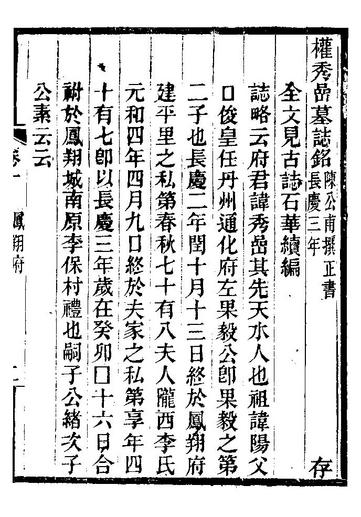 權秀嵒墓誌銘 陳公甫撰正書
長慶三年
存
全文見古誌石華續編
誌略云府君諱秀嵒其先天水人也祖諱陽父
口俊皇任丹州通化府左果毅公卽果毅之第
二子也長慶二年閏十月十三日終於鳳翔府
建平里之私第春秋七十有八夫人隴西李氏
元和四年四月九日終於夫家之私第享年四
十有七卽以長慶三年歲在癸卯口十六日合
祔於鳳翔城南原李保村禮也嗣子公緒次子
公素云云
卷一 鳳翔府 二